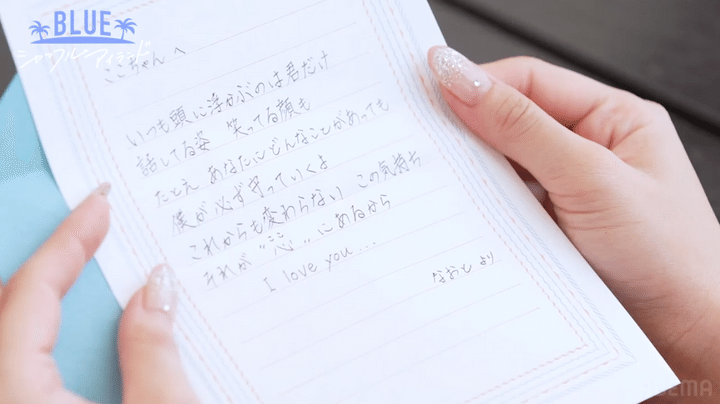 BLUE
シャッフルアイランド
ここちゃんへ
いつも頭に浮かぶのは君だけ
話してる姿 笑ってる顔も
たとえ あなたにどんなことがあっても
僕が必ず守っていくよ
これからも変わらない この気持ち
ここ
それが "心" にあるから
I love you...
なおとより
ABEMA